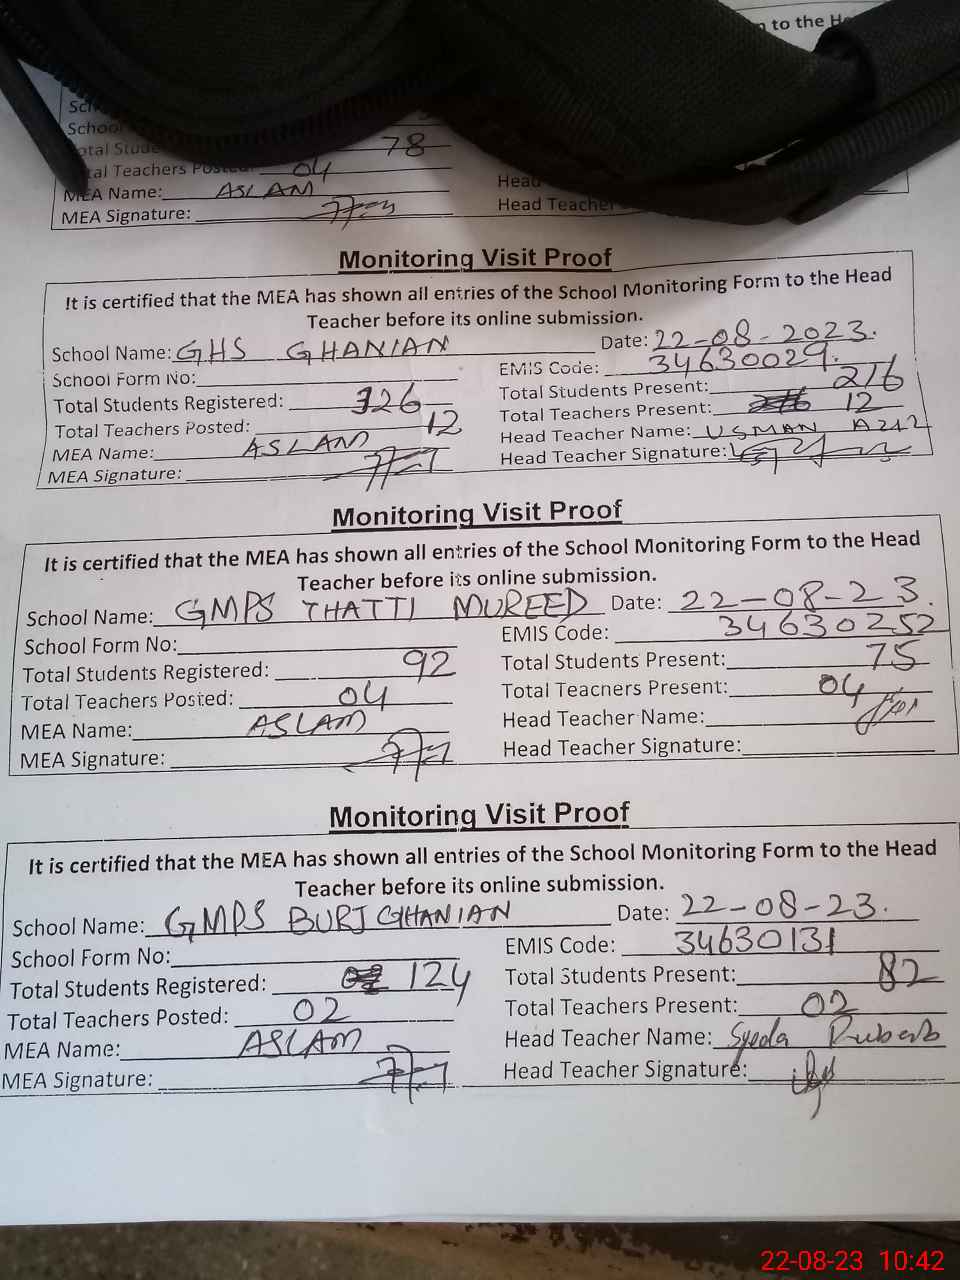 to the H
School
otal Stude 78
tal Teachers Posted: 04
MEA Name: ASLAM Head
MEA Signature: Head Teacher
Monitoring Visit Proof
It is certified that the MEA has shown all entries of the School Monitoring Form to the Head
Teacher before its online submission.
School Name: GHS GHANIAN Date: 22-08-2023.
School Form No: EMIS Code: 34630029.
Total Students Registered: 326 Total Students Present: 216
Total Teachers Posted: 12 Total Teachers Present: 12
MEA Name: ASLAM Head Teacher Name: USMAN
MEA Signature: Head Teacher Signature:
Monitoring Visit Proof
It is certified that the MEA has shown all entries of the School Monitoring Form to the Head
Teacher before its online submission.
School Name: GMPS THATTI MUREED Date: 22-08-23.
School Form No: EMIS Code: 34630252
Total Students Registered: 92 Total Students Present: 75
Total Teachers Posted: 04 Total Teachers Present: 04
MEA Name: ASLAM Head Teacher Name:
MEA Signature: Head Teacher Signature:
Monitoring Visit Proof
It is certified that the MEA has shown all entries of the School Monitoring Form to the Head
Teacher before its online submission.
School Name: GMPS BURJ GHANIAN Date: 22-08-23.
School Form No: EMIS Code: 34630131
Total Students Registered: 124 Total Students Present: 82
Total Teachers Posted: 02 Total Teachers Present: 02
MEA Name: ASLAM Head Teacher Name: Syeda
MEA Signature: Head Teacher Signature:
22-08-23 10:42